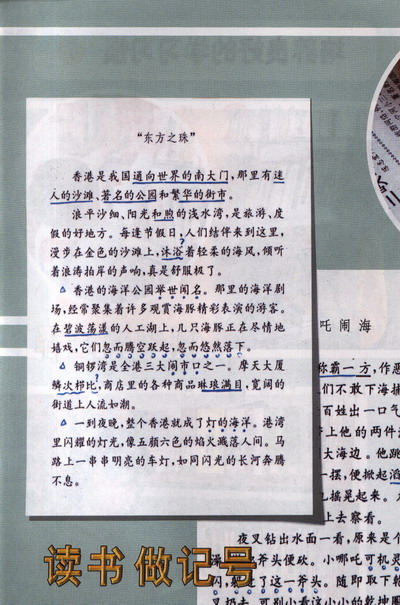 “东方之珠”
香港是我国通向世界的南大门，那里有迷
人的沙滩、著名的公园和繁华的街市。
浪平沙细、阳光和煦的浅水湾，是旅游、度
假的好地方。每逢节假日，人们结伴来到这里，
漫步在金色的沙滩上，沐浴着轻柔的海风，倾听
着浪涛拍岸的声响，真是舒服极了。
香港的海洋公园举世闻名。那里的海洋剧
场，经常聚集着许多观赏海豚精彩表演的游客。
在碧波荡漾的人工湖上，几只海豚正在尽情地
嬉戏，它们忽而腾空跃起，忽而悠然落下。
铜锣湾是全港三大闹市口之一。摩天大厦
鳞次栉比，商店里的各种商品琳琅满目，宽阔的
街道上人流如潮。
一到夜晚，整个香港就成了灯的海洋。港湾
里闪耀的灯光，像五颜六色的焰火溅落人间。马
路上一串串明亮的车灯，如同闪光的长河奔腾
不息。
吒闹海
称霸一方，作恶
们不敢下海捕
百姓出一口气
上他的两件
大海边。他跳
一摆，便掀起滔
摇晃起来。
上去察看。
夜叉钻出水面一看，原来是个
斧头便砍。小哪吒可机灵
闪，躲过了这一斧头。随即取下
叉扔去。可别小看这小小的乾坤圈
读书 做记号